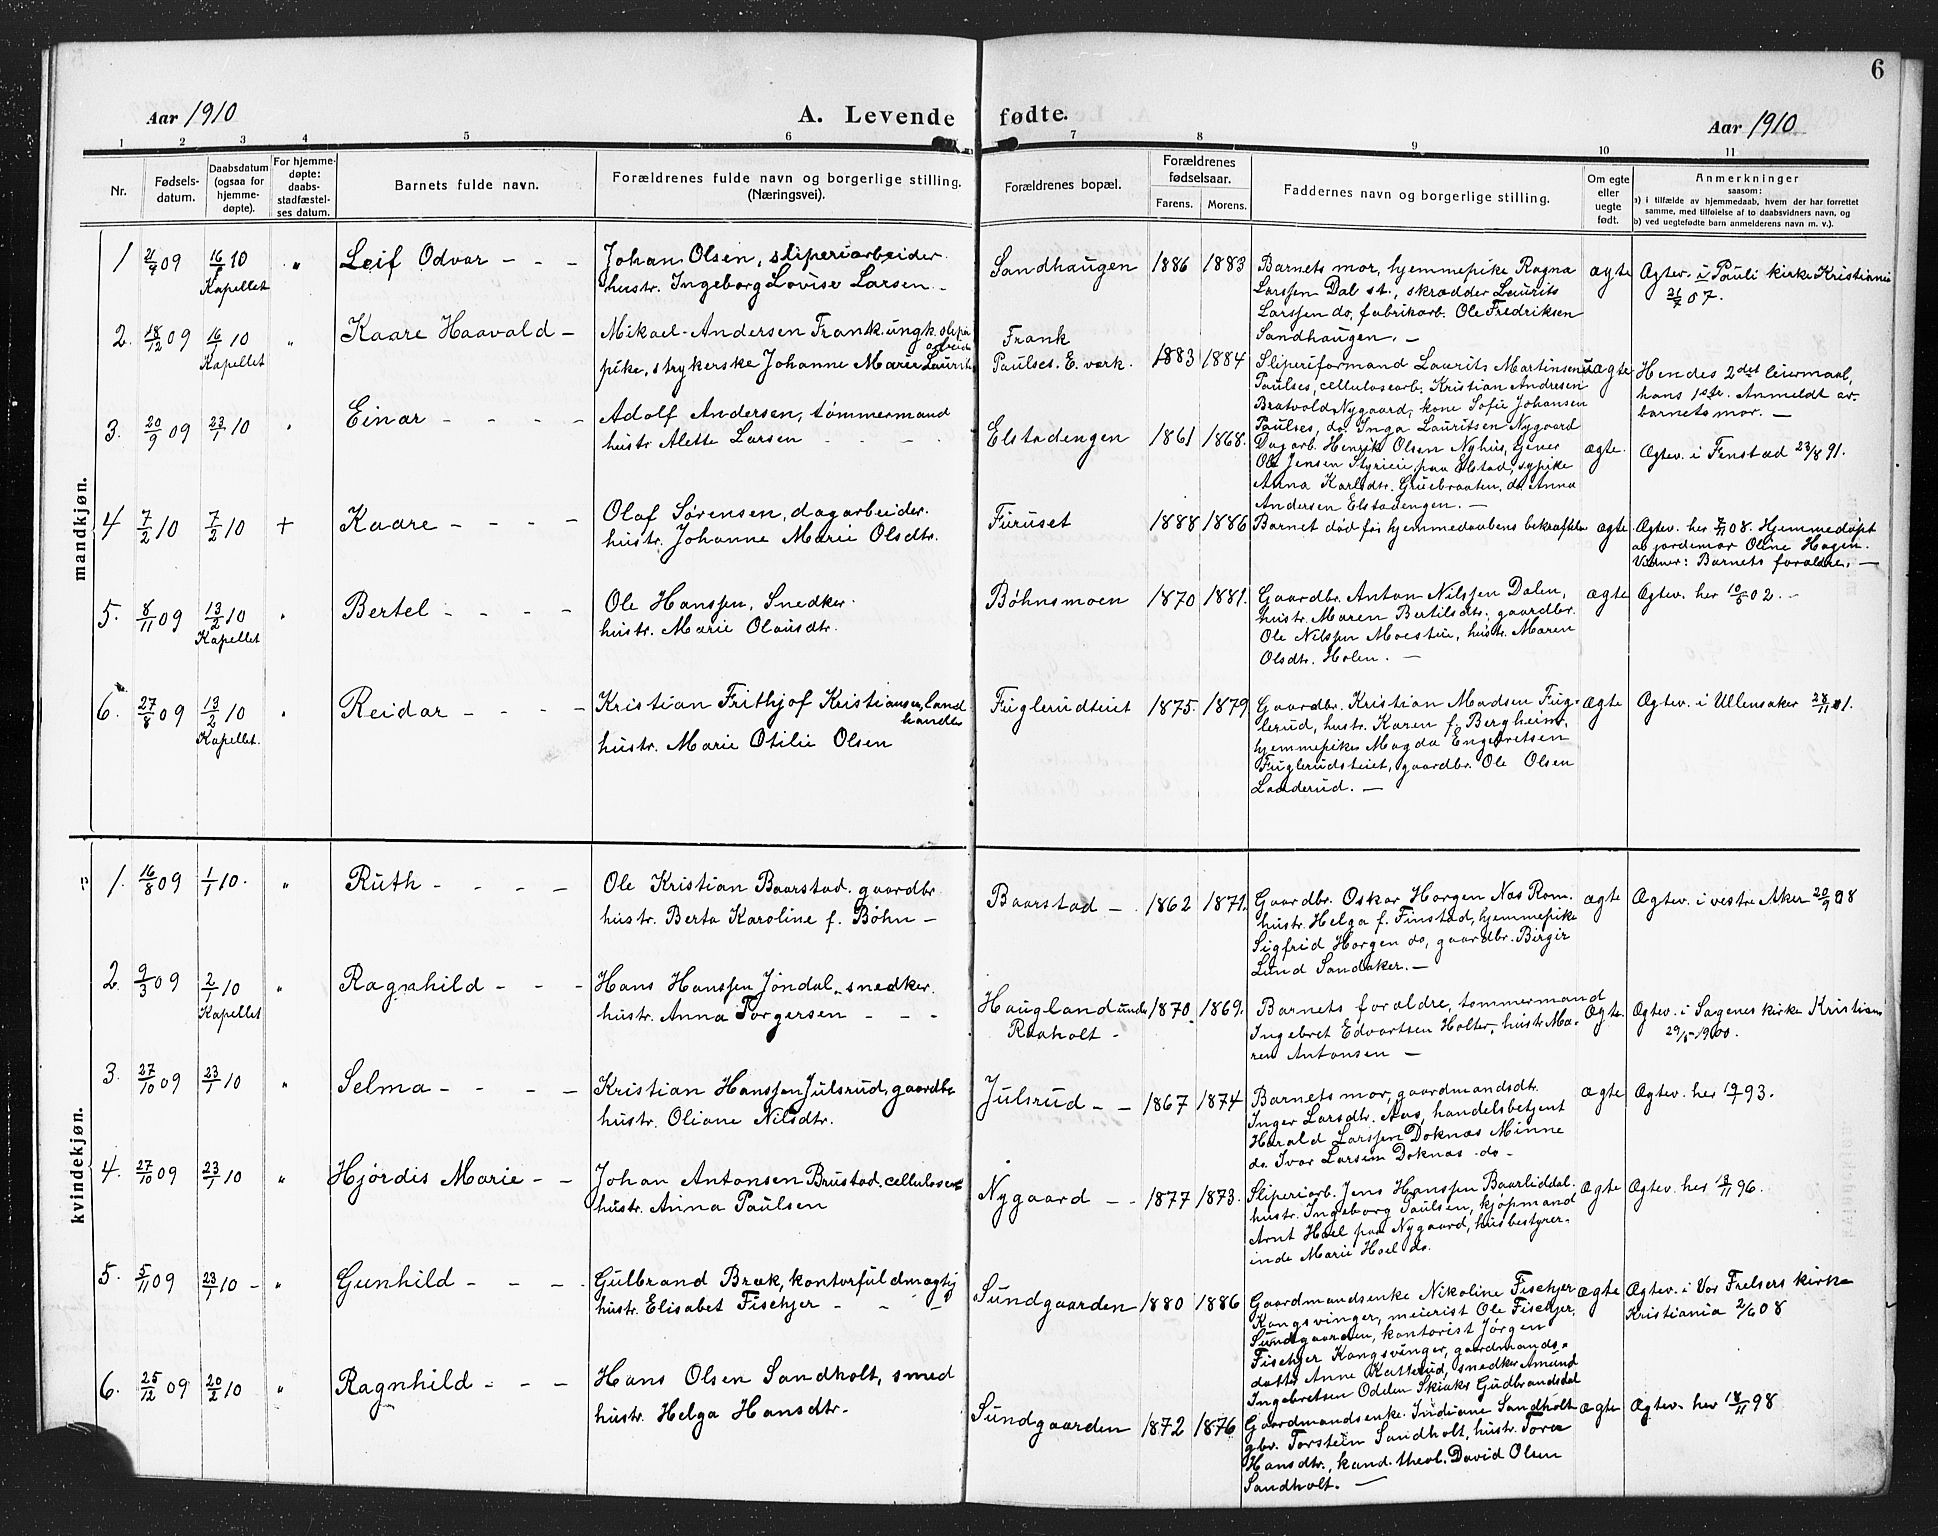 6
Aar 1910
A. Levende fødte.
Aar 1910
1 2 3 4 5 6 7 8 9 10 11
Nr.
Fødsels-
datum.
Daabsdatum
(ogsaa for
hjemme-
døpte).
For hjemme-
døpte:
daabs-
stadfæstel-
ses datum.
Barnets fulde navn.
Forældrenes fulde navn og borgerlige stilling.
(Næringsvei).
Forældrenes bopæl.
Forældrenes
fødselsaar.
Farens. Morens.
Faddernes navn og borgerlige stilling.
Om egte
eller
uegte
født.
Anmerkninger
saasom:
a) i tilfælde av hjemmedaab, hvem der har forrettet
samme, med tilføielse af to daabsvidners navn, og
b) ved uegtefødte barn anmelderens navn m. v.).
mandkjøn.
1 21/9 09 16/1 10 " Leif Odvar - - -
Kapellet
Johan Olsen, sliperiarbeider.
hustr. Ingeborg Lovise Larsen -
Sandhaugen 1886 1883
Barnets mor, hjemmepike Ragna
Larssen Dal st., skrædder Laurits
Larssen do, fabrikarb. Ole Fredriksen
Sandhaugen. -
ægte
Ægtev. i Pauli kirke Kristiania
21/7 07.
2. 18/12 09 16/1 10 " Kaare Haavald -
Kapellet
Mikael Andersen Frank, ungk. sliperi
arbeider
pike, strykerske Johanne Marie Laurits
Frank
Paulses. E. verk. 1883 1884
Sliperiformand Laurits Martinsen
Paulses, cellulosearb. Kristian Andresen
Bratvold, Nygaard, kone Sofie Johansen
Paulses, do. Inga Lauritsen Nygaard
uægte
Hendes 2det leiermaal,
hans 1ste. Anmeldt av
barnets mor. -
3. 20/9 09 23/1 10 " Einar - - - -
Adolf Andersen, tømmermand
hustr. Alette Larsen - - -
Elstadengen 1861 1868.
Dagarb. Henrik Olsen Nyhus,
Ole Jensen paa Elstad, sypike
Anna Karlsdtr. Gruebraaten, do. Anna
Andersen Elstadengen. -
ægte.
Ægtev. i Fenstad 23/8 91.
4 7/2 10 7/2 10 + Kaare - - - -
Olaf Sørensen, dagarbeider.
hustr. Johanne Marie Olsdtr.
Furuset 1888 1886
Barnet død før hjemmedaabens bekræftelse
ægte
Ægtev. her 08. Hjemmedøpt
av jordemor Oline Hagen.
Vidner: Barnets forældre. -
5. 8/11 09 13/2 10 " Bertel - - - -
Kapellet
Ole Hanssen, Snedker.
hustr. Marie Olausdtr.
Bøhnsmoen 1870 1881.
Gaardbr. Anton Nilssen Dalen,
hustr. Maren Bertilsdtr, gaardbr.
Ole Nilssen Moesteie, hustr. Maren
Olsdtr. Holen. -
ægte
Ægtev. her 10/5 02. -
6. 27/8 09 13/2 10 " Reidar - - - -
Kapellet.
Kristian Frithjof Kristiansen, land
handler
hustr. Marie Otilie Olsen
Fuglerudteiet 1875. 1879
Gaardbr. Kristian Madsen Fug-
lerud, hustr. Karen f. Bergheim,
hjemmepike Magda Engebretsen
Fuglerudsteiet, gaardbr. Ole Olsen
Landerud. -
ægte
Ægtev. i Ullensaker 28/11 01.
kvindekjøn.
1. 16/8 09 1/1 10. " Ruth - - - -
Ole Kristian Baarstad. gaardbr.
hustr. Berta Karoline f. Bøhn -
Baarstad - 1862 1871.
Gaardbr. Oskar Horgen Nes Rom.
hustr. Helga f. Finstad, hjemmepike
Sigfrid Horgen do, gaardbr. Birgir
Lund Sandaker. -
ægte
Ægtev. i vestre Aker 20/9 08
2. 9/3 09 2/1 10 " Ragnhild - - -
Kapellet
Hans Hanssen Jøndal, snedker.
hustr. Anna Torgersen - - -
Haugland under
Raaholt - 1870 1869.
Barnets forældre, tømmermand
Ingebret Edvartsen Holter, hustr. Ma-
ren Antonsen -
ægte.
Ægtev. i Sagenes kirke Kristiania
29/5 1900.
3. 27/10 09 23/1 10 " Selma - - - -
Kristian Hanssen Julsrud, gaardbr
hustr. Oliane Nilsdtr.
Julsrud - - 1867 1874
Barnets mor, gaardmandsdtr.
Inger Larsdtr. Aas, handelsbetjent
Harald Larssen Doknæs Minne
do. Ivar Larsen Doknæs do -
ægte
Ægtev. her 93.
4. 27/10 09 23/1 10 " Hjørdis Marie - -
Johan Antonsen Brustad, cellulosearb
hustr. Anna Paulsen
Nygaard - - 1877 1873.
Sliperiarb. Jens Hanssen Baarliddal.
hustr. Ingeborg Paulsen, kjøpmand
Arnt Hoel paa Nygaard, husbestyrer-
inde Marie Hoel do.
ægte
Ægtev. her 96.
5. 5/11 09 23/1 10 - " Gunhild - - - -
Gulbrand Bræk, kontorfuldmægtig
hustr. Elisabet Fischjer - - -
Sundgaarden 1880 1886
Gaardmandsenke Nikoline Fischjer
Kongsvinger, meierist Ole Fischjer
Sundgaarden, kontorist Jørgen
Fischjer Kongsvinger, gaardmands-
datter Anne Katterud, snedker Amund
Ingebretsen Odden Skiaker Gudbrandsdal
ægte
Ægtev. i Vor Frelsers kirke
Kristiania 2/6 08
6. 25/12 09 20/2 10 " Ragnhild - - -
Hans Olsen Sandholt, smed
hustr. Helga Hansdtr.
Sundgaarden 1872 1876
Gaardmandsenke Indiane Sandholt
gbr. Torstein Sandholt, hustr. Tora
Hansdtr., kand. theol. David Olsen
Sandholt. -
ægte
Ægtev. her 18/11 98